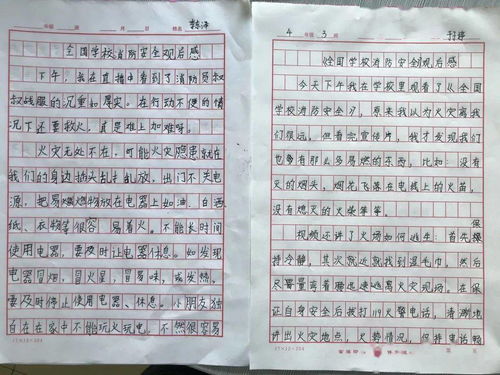 年级 班 月 日 姓名 李泽
全国学校消防安全观后感
下午，我在直播中看到了消防员叔
叔战服的沉重如厚实。在行动不便的情
况下还要救火，真是难上加难呀。
火灾无处不在，可能火灾隐患就在
我们的身边插头乱扎乱放，出门不关电
源，把易燃燃物放在电器上如油、白酒、
纸、衣物等很容 易着火。不能长时间
使用电器，要及时让电器休息。如发现
电器冒烟，冒火星，冒易味，或发烧。
要及时停止使用电器、休息。小朋友独
自在在家中不能玩火玩电，不然很容易
17×12=204
4 年级 3 班
《全国学校消防安全》观后感
今天下午我在学校里观看了从全国
学校消防安全》，原来我以为火灾离我
们很远，但看完宣传片，我才发现我们
也多有那么多易燃的东西，比如：没有
灭的烟头，烟花飞落在电线上的火苗，
没有熄灭的火柴等等。
视频还讲了火场如何逃生：首先保
持冷静，其次就近就找到湿毛巾。然后
尽量蹲着腰迅速逃离火灾现场。在保
证自身安全后拨打119火警电话，清晰地
讲出火灾地点，火势情况，但将电话畅
17×12=204